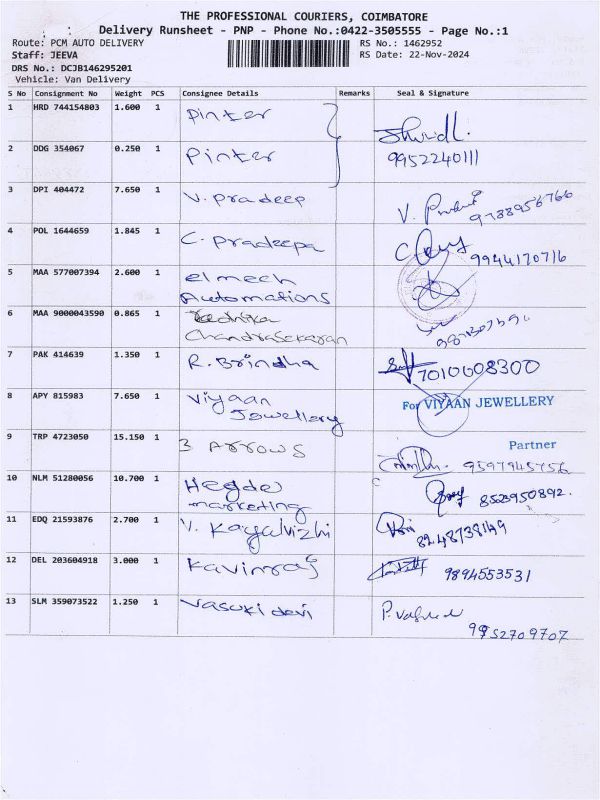 THE PROFESSIONAL COURIERS, COIMBATORE
Delivery Runsheet - PNP - Phone No.:0422-3505555 - Page No.:1
Route: PCM AUTO DELIVERY RS No.: 1462952
Staff: JEEVA RS Date: 22-Nov-2024
DRS No.: DCJB146295201
Vehicle: Van Delivery
S No Consignment No Weight PCS Consignee Details Remarks Seal & Signature
1 HRD 744154803 1.600 1 pinter
2 DDG 354067 0.250 1 Pinter 9952240111
3 DPI 404472 7.650 1 V. pradeep V. 9788956766
4 POL 1644659 1.845 1 C. pradeepa 9944170716
5 MAA 577007394 2.600 1 elmech
Automations
6 MAA 9000043590 0.865 1
Chandrasekaran
7 PAK 414639 1.350 1 R. Brindha 7010008300
8 APY 815983 7.650 1 Viyaan For VIYAAN JEWELLERY
Jewellery
9 TRP 4723050 15.150 1 3 ARROWS Partner
9597945756
10 NLM 51280056 10.700 1 Hegde
marketing 8523950892.
11 EDQ 21593876 2.700 1 V. Kayalvizhi 8248738149
12 DEL 203604918 3.000 1 Kavinraj 9894553531
13 SLM 359073522 1.250 1 Vasuki devi P.
9952709707